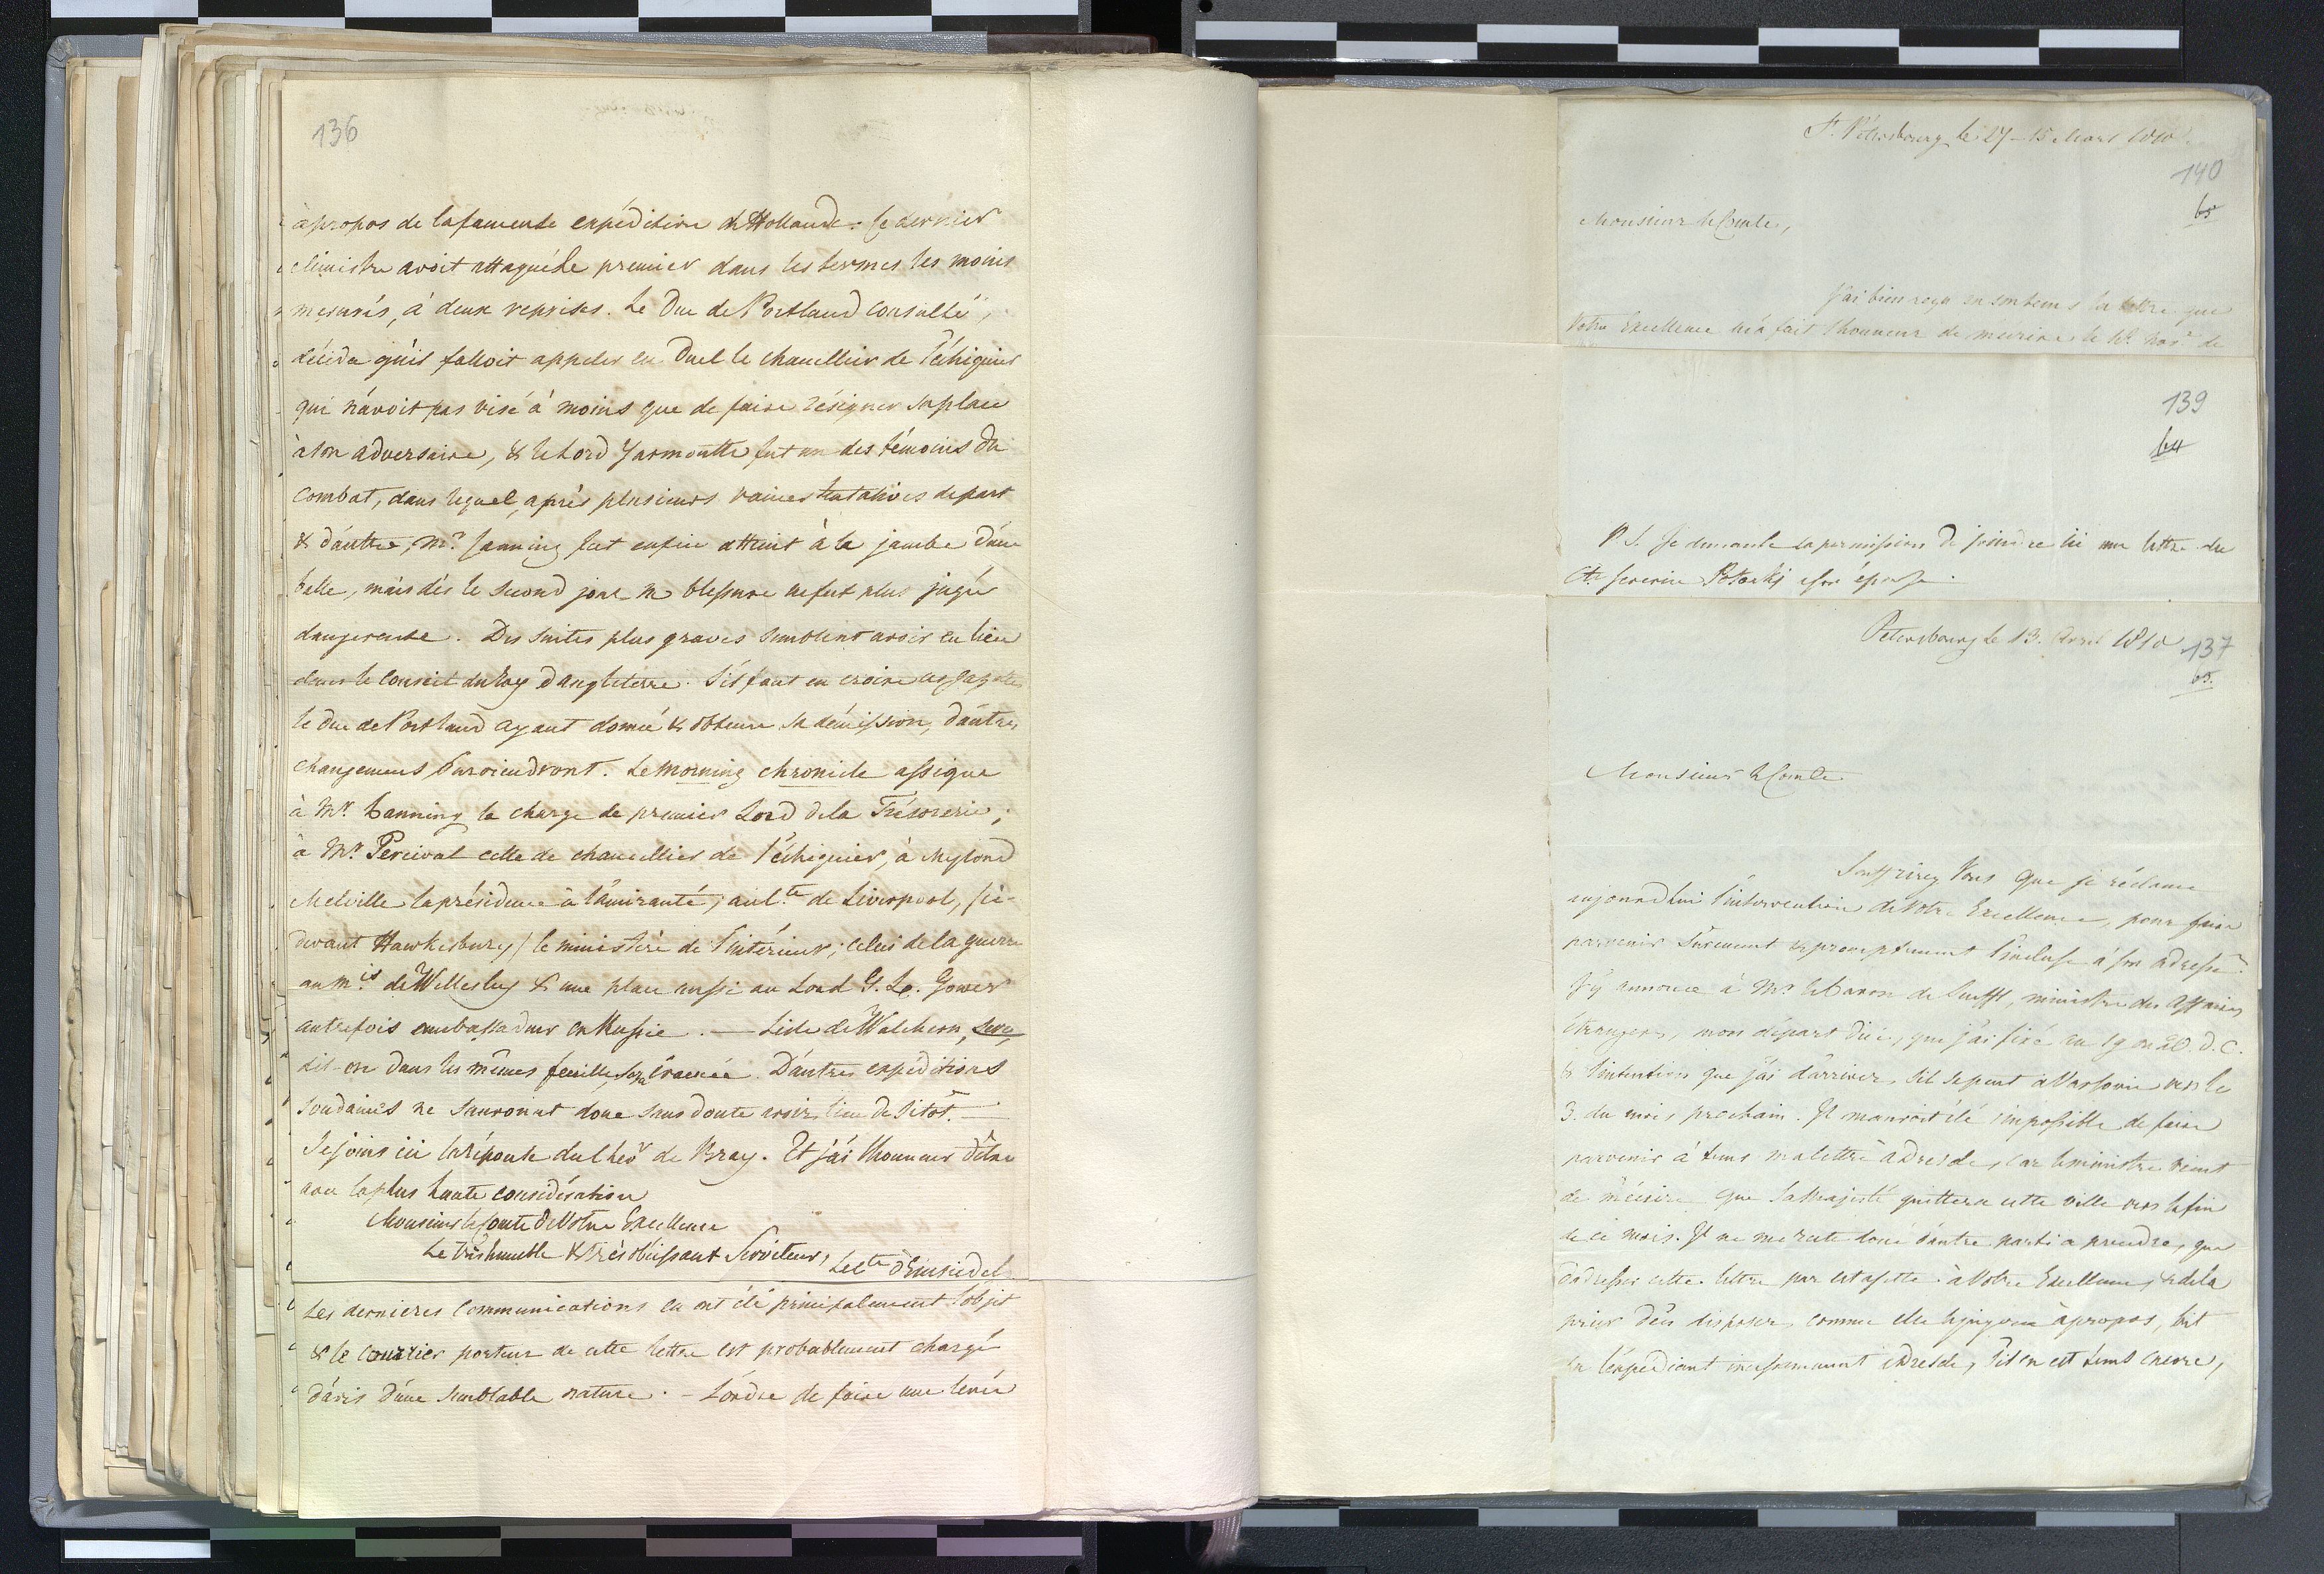 136
àpropos de lafameuse expédition de Hollande. Ce dernier
Ministre avoit attaqué le premier dans les termes les moins
mesurés, à deux reprises. Le Duc de Portland consulté,
décida qu'il falloit appeler en Duel le chancellier de l'échiquier
qui n'avoit pas visé à moins que de faire résigner sa place
à son adversaire, & le Lord Yarmouth fut un des témoins du
combat, dans lequel, après plusieurs vaines tentatives de part
& d'autre, Mr. Canning fut enfin atteint à la jambe d'une
balle, mais dès le second jour sa blessure ne fut plus jugée
dangereuse. Des suites plus graves semblent avoir eu lieu
dans le conseil du Roy d'angleterre. S'il faut en croire les gazettes
le Duc de Portland ayant donné & obtenu sa démission, d'autres
changemens surviendront. Le Morning chronicle assigne
à Mr. Canning la charge de premier Lord de la Trésorerie;
à Mr. Percival celle de chancellier de l'échiquier, à Mylord
Melville la présidence à l'amirauté; au Cte. de Liverpool, (ci-
devant Hawkesbury) le ministère de l'intérieur; celui de la guerre
au Mis de Wellesley & une place aussi au Lord G. L. Gower
autrefois ambassadeur en Russie. — L'isle de Walcheren,
dit-on dans les mêmes feuilles, sera évacuée. D'autres expéditions
soudaines ne sauroient donc sans doute avoir lieu de sitôt. —
Je joins ici la réponse du Cher de Bray. Et j'ai l'honneur d'être
avec la plus haute considération
Monsieur le Comte de Votre Excellence
Le très humble & très obéissant Serviteur,
Le Cte d'Einsiedel
Les dernieres communications en ont été principalement l'objet
& le courrier porteur de cette lettre est probablement chargé
d'avis d'une semblable nature. — L'ordre de faire une levée
St. Pétersbourg le 27-15 Mars 1810.
140
65
Monsieur le Comte,
J'ai bien reçu en son tems la lettre que
Votre Excellence m'a fait l'honneur de m'écrire le de
139
64
P. S. Je demande la permission de joindre ici une lettre du
Cte Severin Potocki à son épouse.
Petersbourg le 13. Avril 1810
137
63.
Monsieur le Comte
Souffrirez Vous que je réclame
aujourd'hui l'intervention de Votre Excellence, pour faire
parvenir surement & promptement l'incluse à son adresse.
J'y annonce à Mr. le Baron de Senfft, ministre des affaires
étrangeres, mon départ d'ici, que j'ai fixé au 19 ou 20. d. C.
& l'intention que j'ai d'arriver, s'il se peut à Varsovie vers le
3. du mois prochain. Il m'auroit été impossible de faire
parvenir à tems ma lettre à Dresde, car le ministre vient
de m'écrire que Sa Majesté quittera cette ville vers la fin
de ce mois. Il ne me reste donc d'autre parti à prendre, que
d'adresser cette lettre par estafette à Votre Excellence, & de la
prier d'en disposer, comme elle le jugera àpropos, soit
en l'expédiant incessamment à Dresde, s'il en est tems encore,